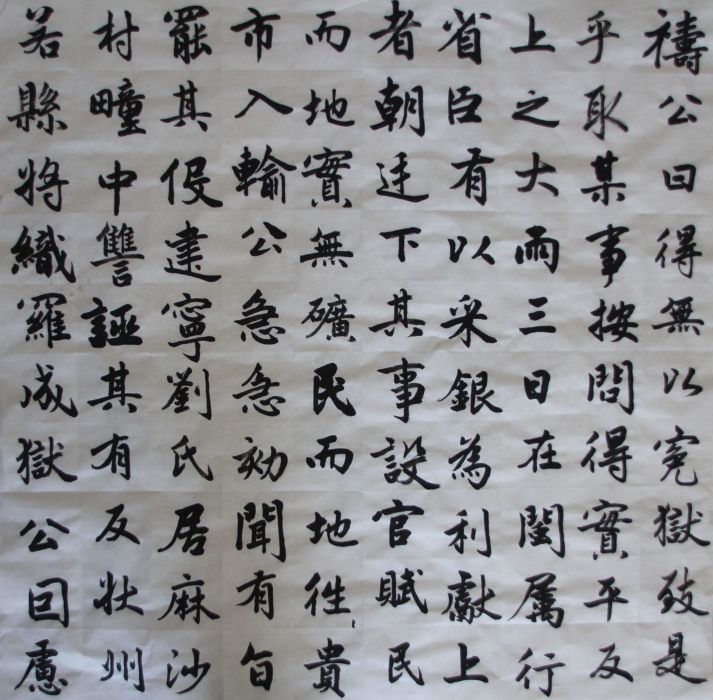 禱公曰得無以冤獄致是
乎取某事按問得實平反
上之大雨三日在閩属行
省臣有以采銀為利獻上
者朝廷下其事設官賦民
而地實無礦民而地徃貴
市入輸公急急劾聞有旨
罷其侵建寧劉氏居麻沙
村疃中讐誣其有反狀州
若縣将織羅成獄公囙慮